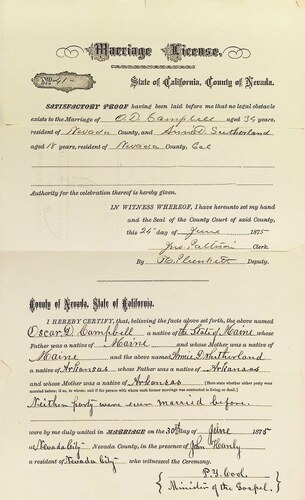 Marriage License.
No. 41
State of California, County of Nevada.
SATISFACTORY PROOF having been laid before me that no legal obstacle
exists to the Marriage of O. D. Campbell aged 34 years,
resident of Nevada County, and Annie D. Sutherland
aged 18 years, resident of Nevada County, Cal
Authority for the celebration thereof is hereby given.
IN WITNESS WHEREOF, I have hereunto set my hand
and the Seal of the County Court of said County,
this 24th day of June 1875
Jno. Pattison Clerk.
By Deputy.
County of Nevada, State of California.
I HEREBY CERTIFY, that, believing the facts above set forth, the above named
Oscar D. Campbell a native of the State of Maine whose
Father was a native of Maine and whose Mother was a native of
Maine and the above named Annie D. Sutherland
a native of Arkansas whose Father was a native of Arkansas
and whose Mother was a native of Arkansas
Neither party were ever married before.
were by me duly united in MARRIAGE on the 30th day of June 1875
at Nevada City Nevada County, in the presence of John Hanly
a resident of Nevada City who witnessed the Ceremony.
P. Y. Cool
Minister of the Gospel.